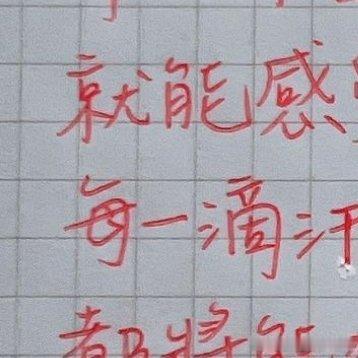 就能感
每一滴汗
都将